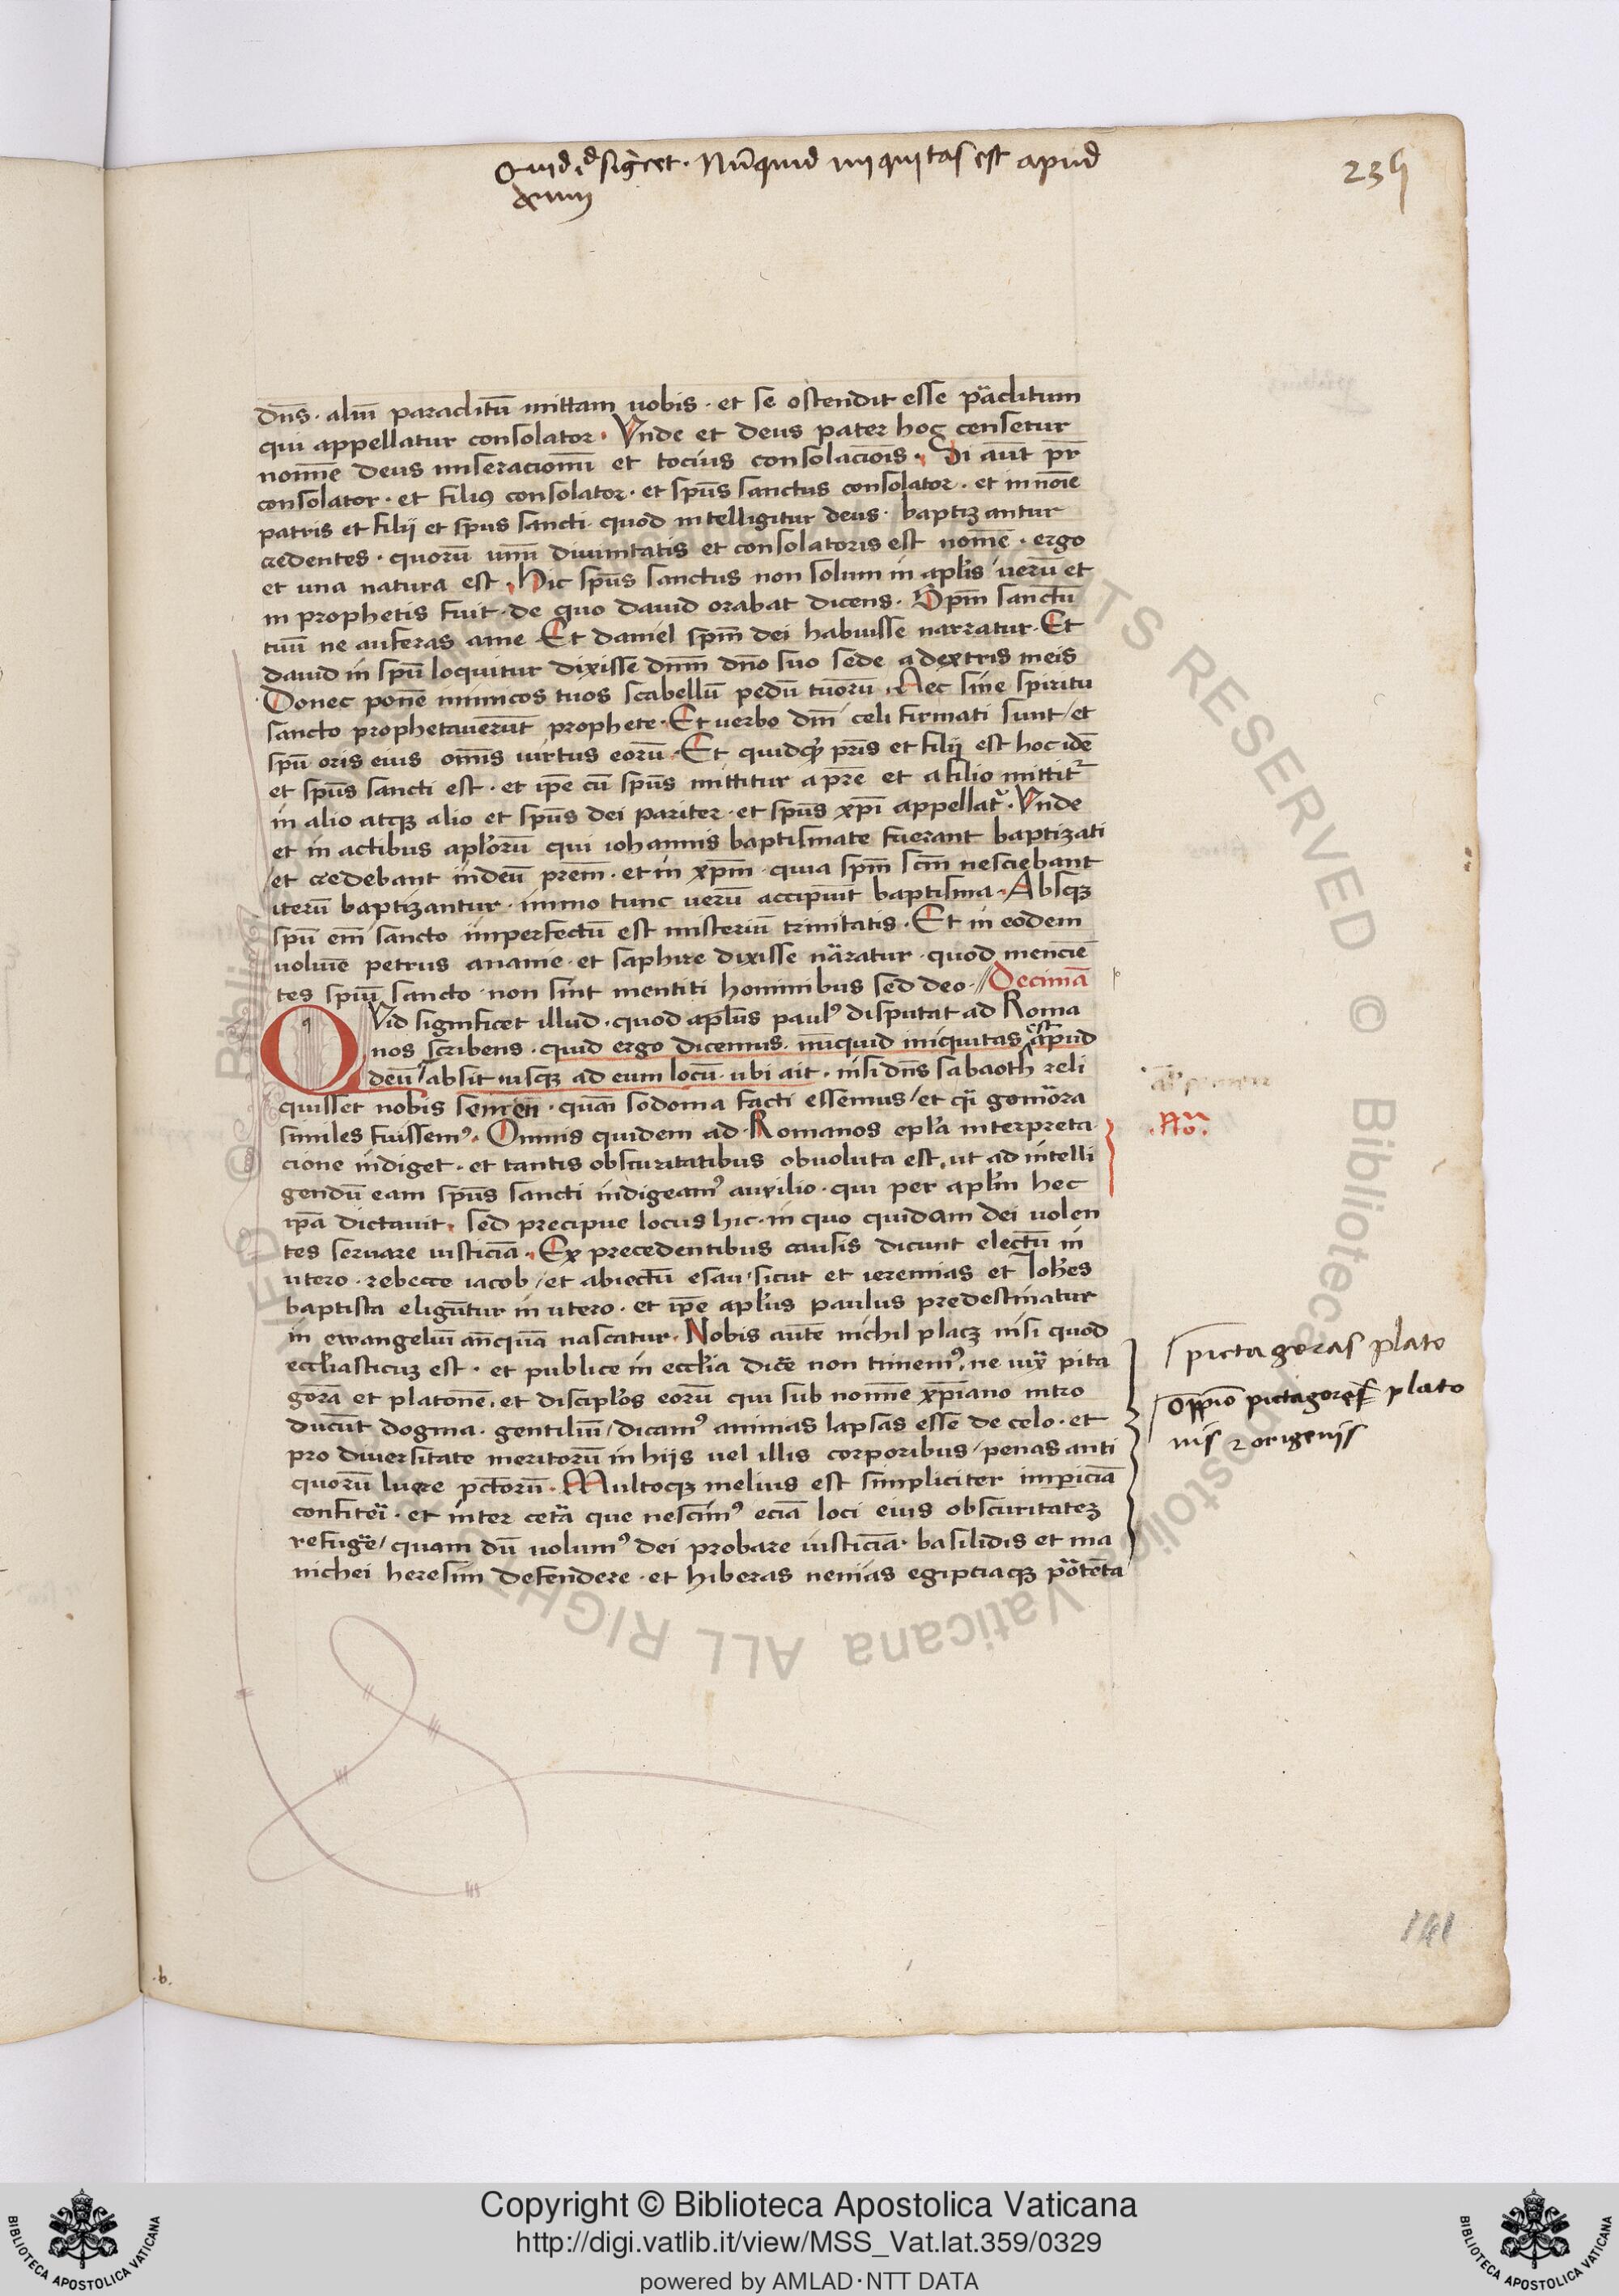 Quid id sigcet. Nūquid iniquitas est apud
xiiij
239
dn̄s. aliū paraclitū mittam uobis. et se ostendit esse paͣclitum
qui appellatur consolator. Vnde et deus pater hoc censetur
nomīe deus miseracionū et tocius consolaciōis. Si aūt pr̄
consolator. et filiꝰ consolator. et sp̄us sanctus consolator. et in noīe
patris et filij et sp̄us sancti. quod intelligitur deus. baptizantur
credentes. quorū unū diuinitatis et consolatoris est nomē. ergo
et una natura est. Hic sp̄us sanctus non solum in apl̄is uerū et
in prophetis fuit. de quo dauid orabat dicens. Sp̄m sanctū
tuū ne auferas a me Et daniel sp̄m dei habuisse narratur. Et
dauid in spū loquitur dixisse dn̄m dn̄o suo sede a dextris meis
Donec ponē inimicos tuos scabellū pedū tuorū. Nec sine spiritu
sancto prophetauerūt prophete. Et uerbo dn̄i celi firmati sunt / et
spū oris eius om̄is uirtus eorū. Et quidqͥd pr̄is et filij est hoc idē
et sp̄us sancti est. et ip̄e cū sp̄us mittitur a pr̄e et a filio mittitᷣ
in alio atqꝫ alio et sp̄us dei pariter. et sp̄us xp̄i appellatᷣ. Vnde
et in actibus apl̄orū qui iohannis baptismate fuerant baptizati
/ et credebant in deū prem̄. et in xp̄m. quia sp̄m scm̄ nesciebant
iterū baptizantur. immo tunc uerū accipiūt baptisma. Absqꝫ
spū em̄ sancto imperfectū est misteriū trinitatis. Et in eodem
uoluīe petrus ananie. et saphire dixisse naͣratur. quod mencīe
tes spiū sancto. non sint mentiti hominibus sed deo. // Decimā
QVid significet illud. quod apl̄us paulꝰ disputat ad Roma
nos scribens. quid ergo dicemus. nūquid iniquitas est apud
deū / absit usqꝫ ad eum locū. ubi ait. nisi dn̄s sabaoth reli
quisset nobis semen. quasi sodoma facti essemus / et qͣi gomoͬra
similes fuissemꝰ. Omnis quidem ad Romanos epl̄a interpreta
.No.
cione indiget. et tantis obscuritatibus obuoluta est. ut ad intelli
gendū eam sp̄us sancti indigeamꝰ auxilio. qui per apl̄m hec
ip̄a dictauit. sed precipue locus hic. in quo quidam dei uolen
tes seruare iusticiā. Ex precedentibus causis dicunt electū in
utero. rebecce iacob / et abiectū esau / sicut et ieremias et Ioh̄es
baptista eligūtur in utero. et ip̄e apl̄us paulus predestinatur
in ewangeliū an̄quā nascatur. Nobis autē nichil placꝫ nisi quod
eccl̄iasticuꝫ est. et publice in eccl̄ia dic̄e non timemꝰ. ne iuxͣ pita
pictagoras plato
gorā et platonē. et discipl̄os eorū qui sub nomīe xp̄iano intro
oppio pictagores plato
ducūt dogma. gentiliū / dicamꝰ animas lapsas esse de celo. et
nis ⁊ origenis
pro diuersitate meritorū in hijs uel illis corporibus / penas anti
quorū luere pctorū. Multoqꝫ melius est simpliciter impiciā
confiteri. et inter cetͣa que nescimꝰ eciā loci eius obscuritateꝫ
refuge / quam dū uolumꝰ dei probare iusticiā. basilidis et ma
nichei heresim defendere. et hiberas nenias egiptiacqꝫ poͬtēta
141
.b.
Copyright © Biblioteca Apostolica Vaticana
http://digi.vatlib.it/view/MSS_Vat.lat.359/0329
powered by AMLAD·NTT DATA
BIBLIOTECA APOSTOLICA VATICANA
BIBLIOTECA APOSTOLICA VATICANA